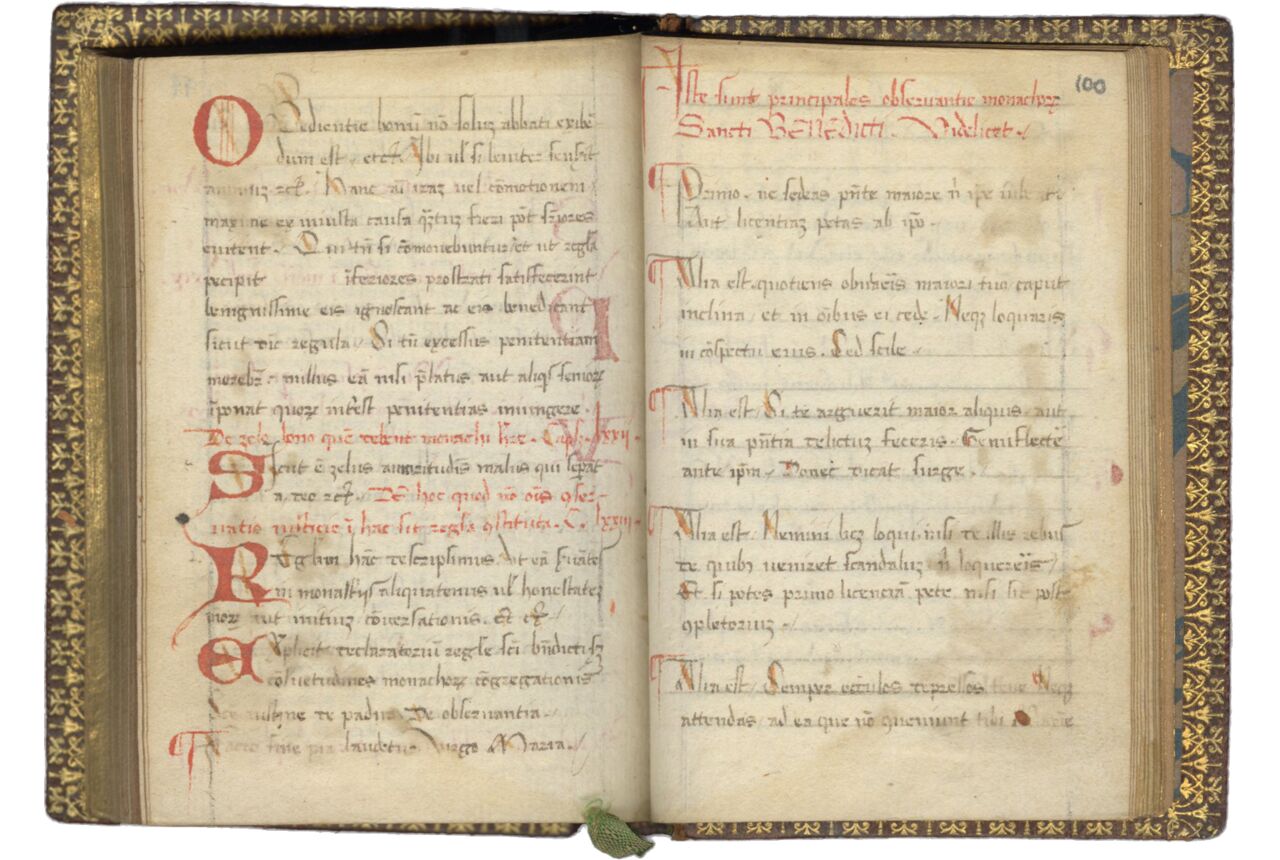 OBedientie bonū nō soluz abbati exibē-
dum est . etc̃. Ubi ul̃ si leuiter senserit
animuz zc̃. Hanc aūt iraz uel cōmotionem
maxime ex iniusta causa q̃ztuz fieri pōt s̃riores
euitent . Qui tñ si cōmouebuntur et ut regl̃a
precipit īferiores prostrati satisfecerint
benignissime eis ignoscant ac eis benedicant
sicut dic̃ regula . Si tñ excessus penitentiam
morebr̃ . nullus eā nisi p̃latus aut aliq̃s senioꝝ
īponat quoꝝ intest penitentias iniungere .
De zelo bono quē debent monachi h̃re . Cap̃. lxxii .
SIcut ē zelus amaritudīs malus qui sep̃at
a deo zc̃. De hoc quod nō oīs obser-
uatio iusticie ī hac sit regl̃a 9stituta . C. lxxiii .
REglam hāc descripsimus . Ut eā s̃uātes
in monast̃iis aliquatenus ul̃ honestatez
moꝝ aut initiuz cōuersationis . Et c̃
EXplicit declaratoriū regl̃e sc̃i bn̄dicti sz̃
cōsuetudines monachoꝝ cōgregationis
Sc̃e iustine de padua . De obseruantia .
¶ fine pia laudetur Virgo Maria .
100
Iste sunt principales obseruantie monachoꝝ
Sancti BENEDICTI . Videlicet .
¶ Primo . ne sedeas p̃nte maiore ñ ip̃e iubeati
Aut licentiaz petas ab ip̃o .
¶ Alia est . quotiens obuiaũis maiori tuo caput
inclina , et in oībus ei cede . Neqz loquaris
in cōspectu eius . Sed sile .
¶ Alia est . Si te arguerit maior aliquis , aut
in sua p̃ntia delictuz feceris . Genuflecte
ante ip̃m . Donec dicat surge .
¶ Alia est . Nemini licz loqui nisi de illis rebus
de quibz ueniret scandaluz ñ loquereris
Et si potes primo licenciā pete . nisi sit post
9pletoriuz .
¶ Alia est . Semper occulos depressos tene Neqz
attendas , ad ea que nō queniunt tibi